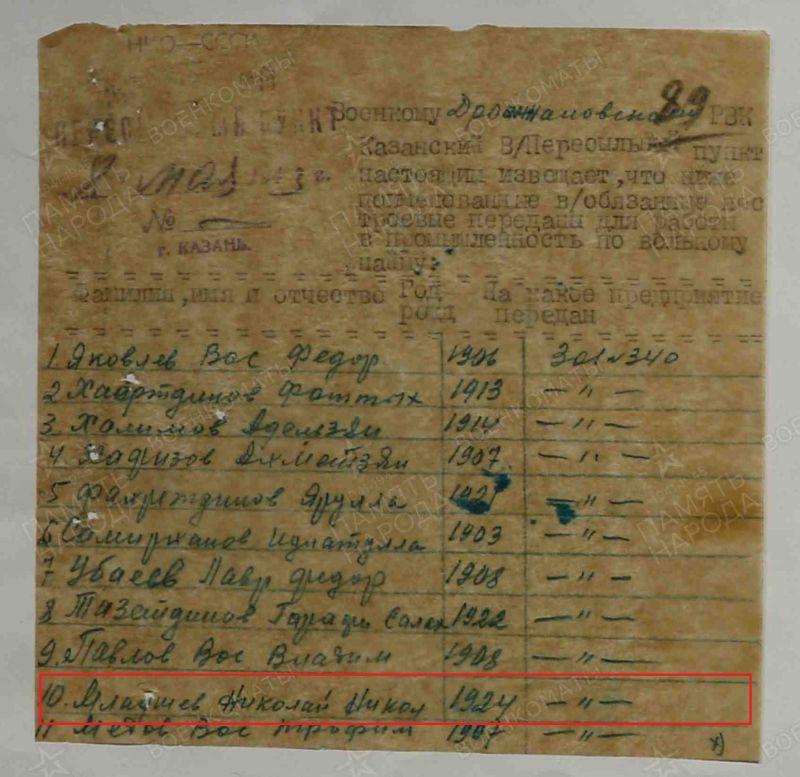 НКО—СССР
ПЕРЕСЫЛЬНЫЙ ПУНКТ
8 МАЯ 1943 г.
№
г. КАЗАНЬ.
89
Военкому Дрожжановского РВК
Казанский В/Пересыльный пункт
настоящим извещает, что ниже
поименованные в/обязанные нес
троевые переданы для работы
в промышленность по вольному
найму:
Фамилия, имя и отчество Год рожд На какое предприятие передан
1 Яковлев Вас Федор 1906 З-д №340
2 Фаттых 1913 —"—
3. Халимов Адельзян 1914 —"—
4. Хафизов Ахметзян 1907 —"—
5 Фахретдинов Ярулла 1921 —"—
6 Самирханов 1903 —"—
7 Убаев Лавр Федор 1908 —"—
8 Гарафи Салах 1922 —"—
9. Павлов Вас Владим 1908 —"—
10. Николай Никол 1924 —"—
11 Вас Трофим 1907 —"—
х)
ПАМЯТЬ НАРОДА
ВОЕНКОМАТЫ